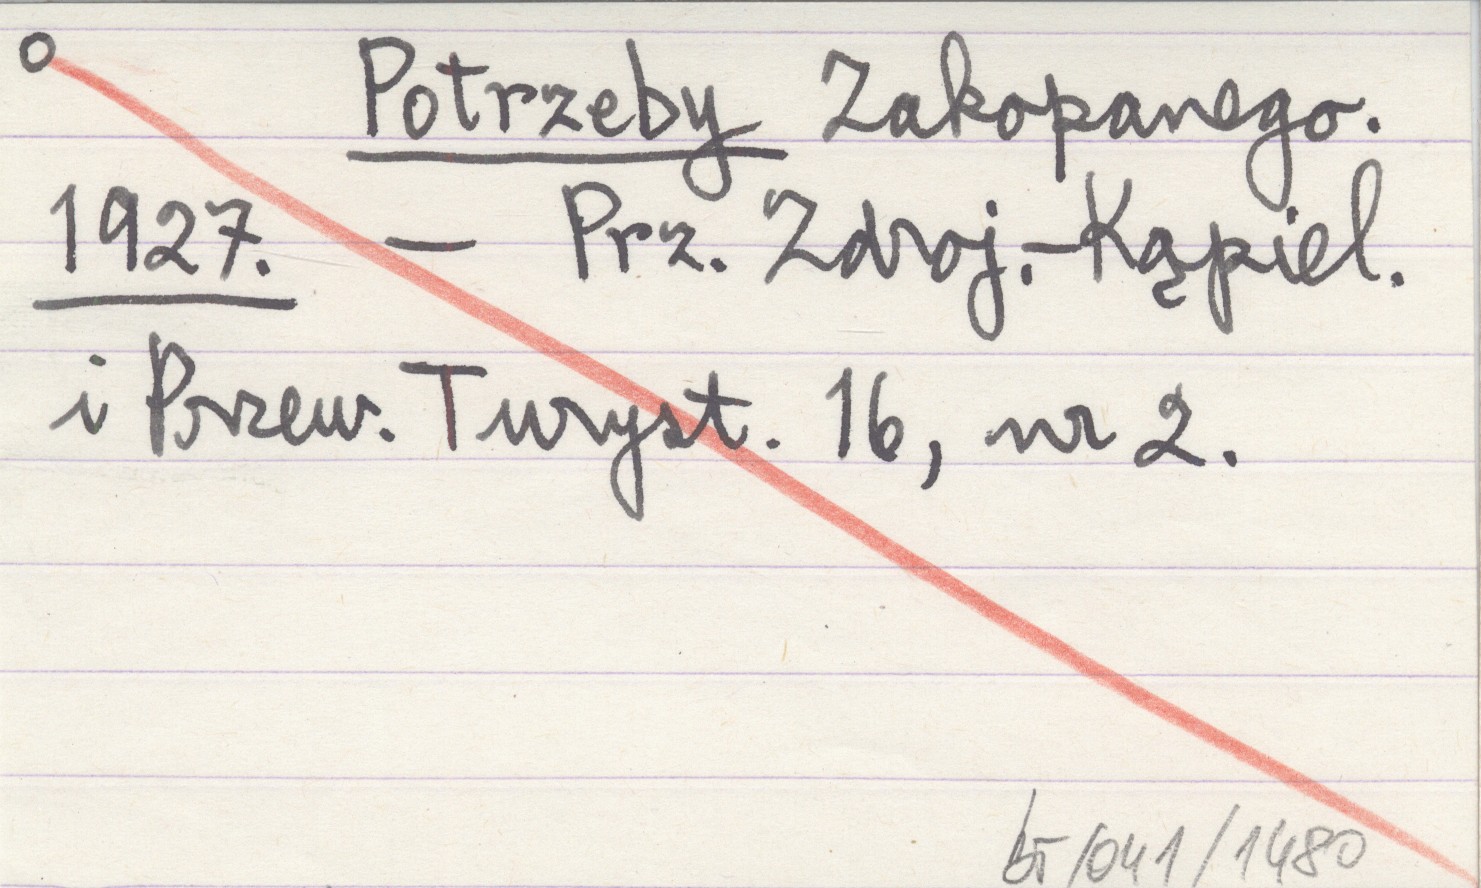 o Potrzeby Zakopanego.
1927. — Prz. Zdroj.-Kąpiel.
i Przew. Turyst. 16, nr 2.
/041/1480